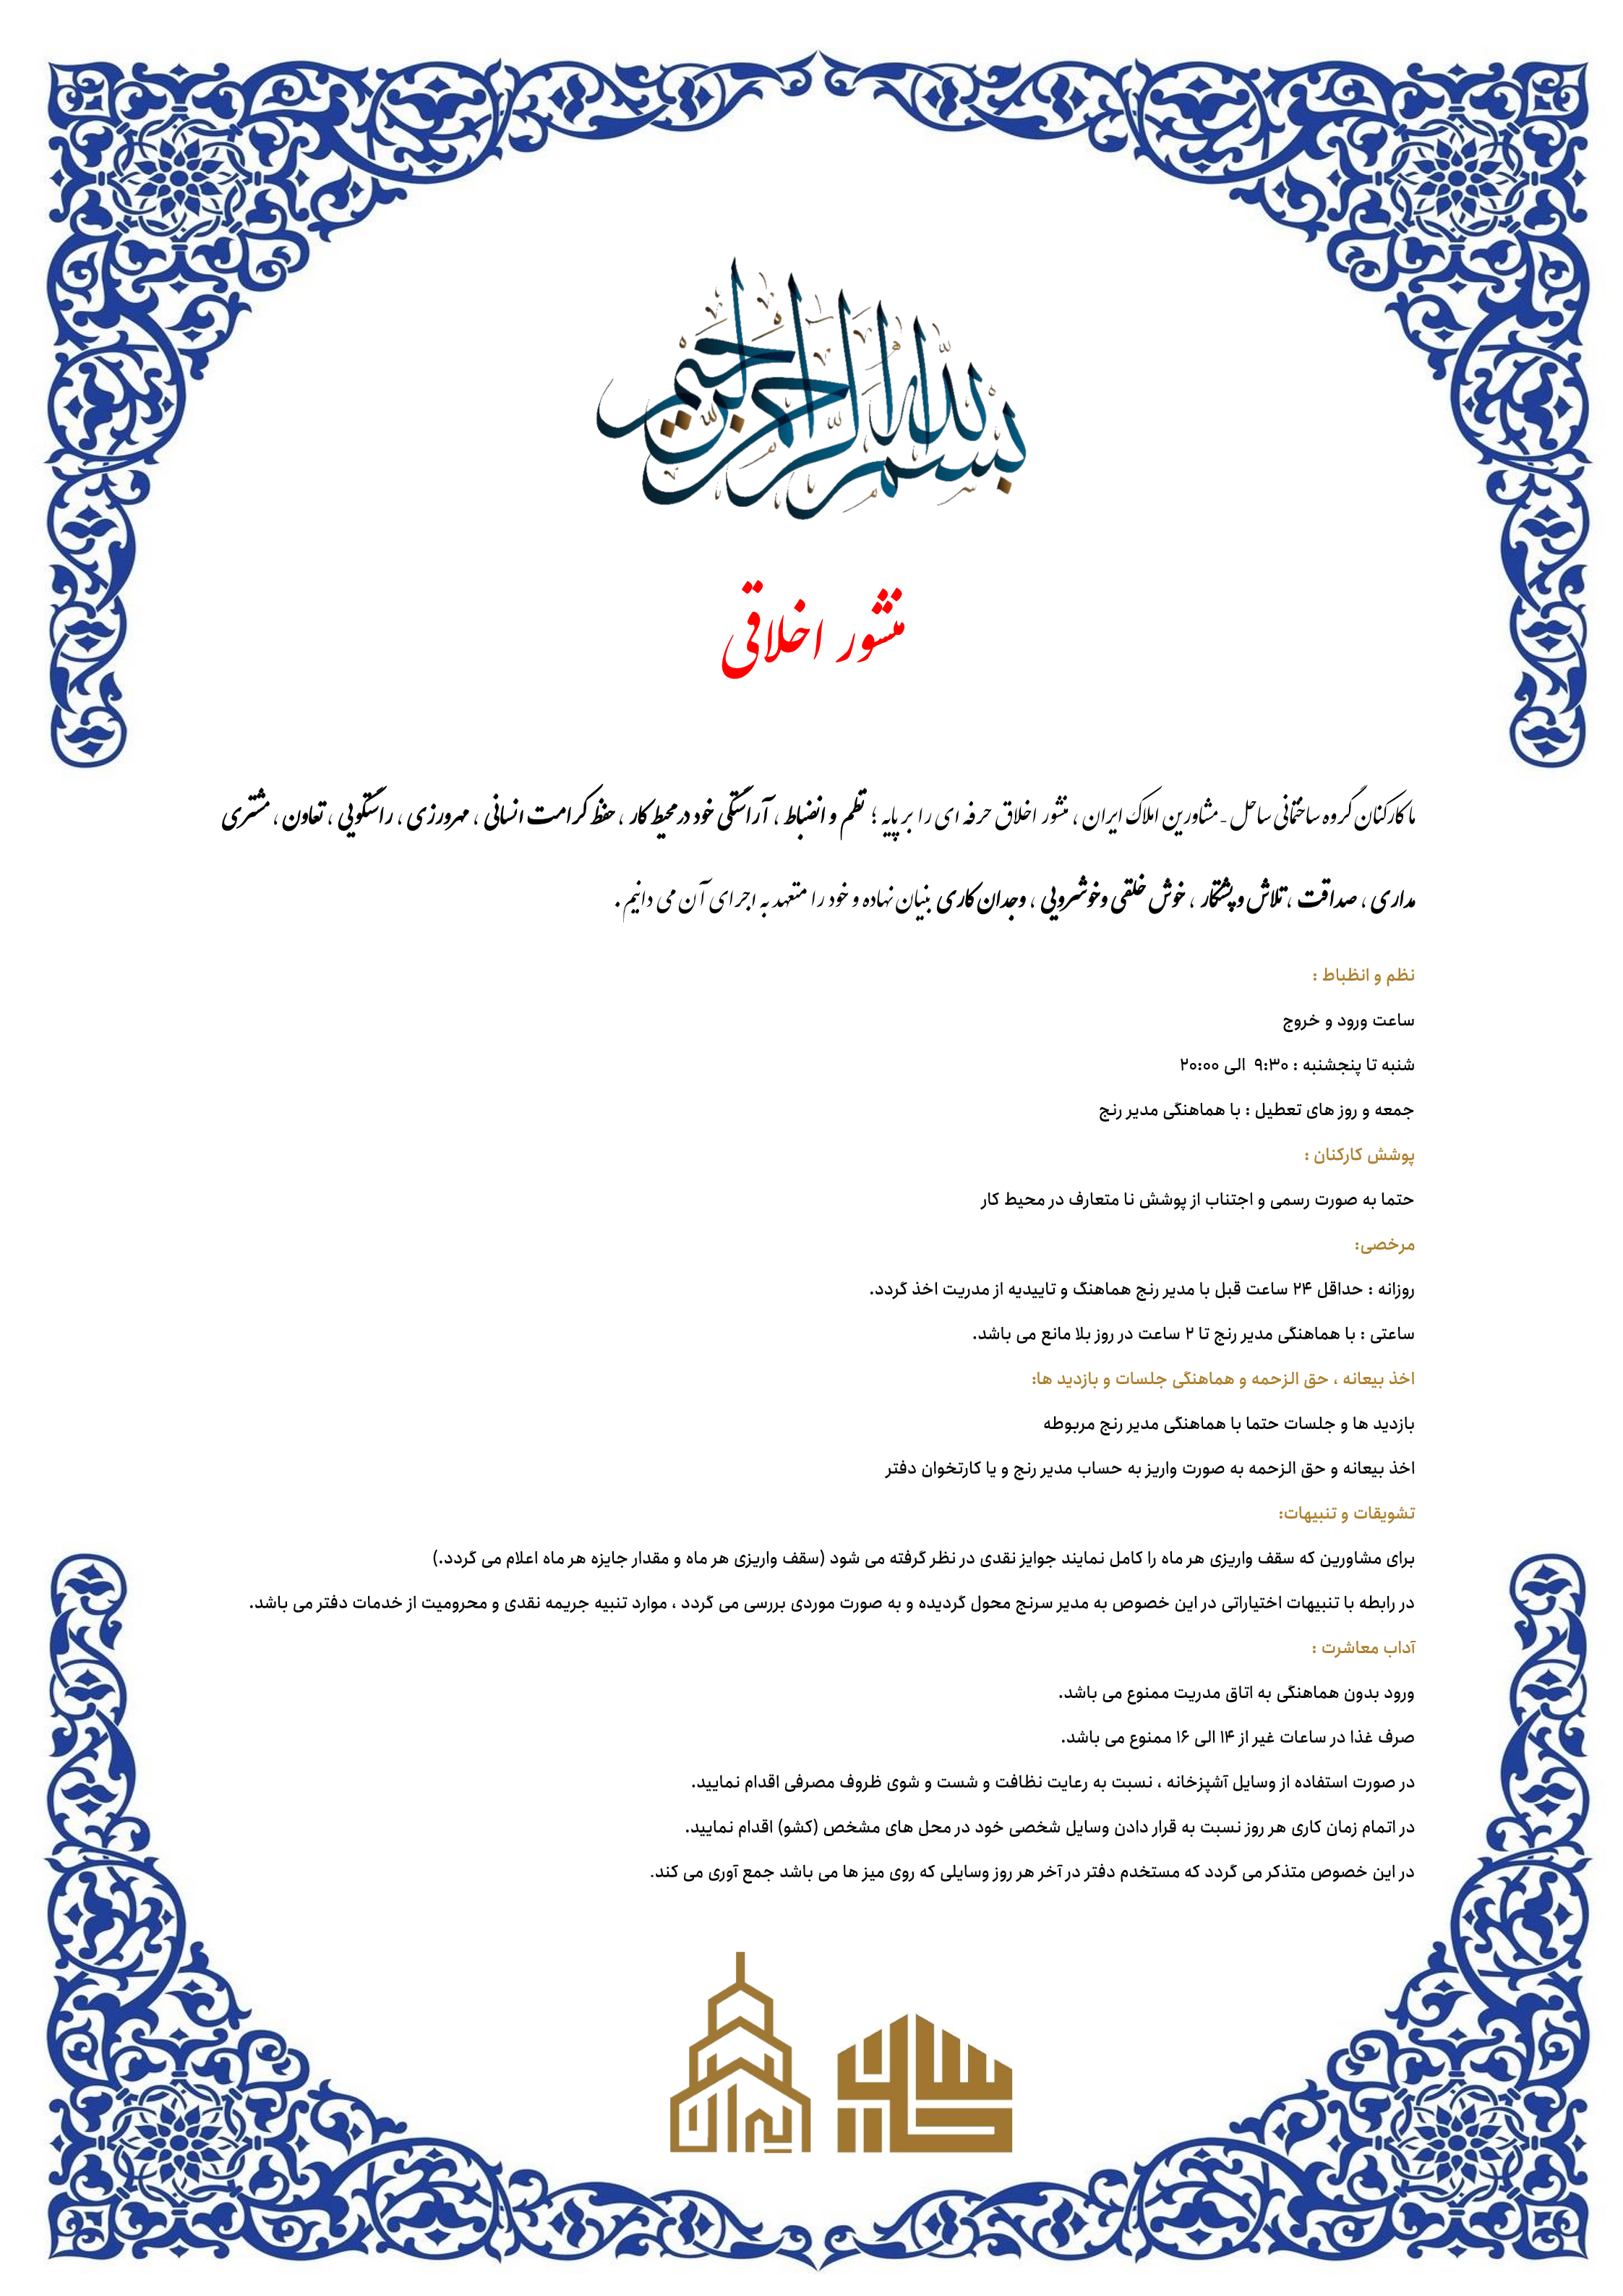 بسم الله الرحمن الرحیم
منشور اخلاقی
ما کارکنان گروه ساختمانی ساحل - مشاورین املاک ایران ، منشور اخلاق حرفه ای را بر پایه ؛ نظم و انضباط ، آراستگی خود در محیط کار ، حفظ کرامت انسانی ، مهرورزی ، راستگویی ، تعاون ، مشتری
مداری ، صداقت ، تلاش و پشتکار ، خوش خلقی وخوشرویی ، وجدان کاری بنیان نهاده و خود را متعهد به اجرای آن می دانیم .
نظم و انظباط :
ساعت ورود و خروج
شنبه تا پنجشنبه : ۹:۳۰ الی ۲۰:۰۰
جمعه و روز های تعطیل : با هماهنگی مدیر رنج
پوشش کارکنان :
حتما به صورت رسمی و اجتناب از پوشش نا متعارف در محیط کار
مرخصی:
روزانه : حداقل ۲۴ ساعت قبل با مدیر رنج هماهنگ و تاییدیه از مدریت اخذ گردد.
ساعتی : با هماهنگی مدیر رنج تا ۲ ساعت در روز بلا مانع می باشد.
اخذ بیعانه ، حق الزحمه و هماهنگی جلسات و بازدید ها:
بازدید ها و جلسات حتما با هماهنگی مدیر رنج مربوطه
اخذ بیعانه و حق الزحمه به صورت واریز به حساب مدیر رنج و یا کارتخوان دفتر
تشویقات و تنبیهات:
برای مشاورین که سقف واریزی هر ماه را کامل نمایند جوایز نقدی در نظر گرفته می شود (سقف واریزی هر ماه و مقدار جایزه هر ماه اعلام می گردد.)
در رابطه با تنبیهات اختیاراتی در این خصوص به مدیر سرنج محول گردیده و به صورت موردی بررسی می گردد ، موارد تنبیه جریمه نقدی و محرومیت از خدمات دفتر می باشد.
آداب معاشرت :
ورود بدون هماهنگی به اتاق مدریت ممنوع می باشد.
صرف غذا در ساعات غیر از ۱۴ الی ۱۶ ممنوع می باشد.
در صورت استفاده از وسایل آشپزخانه ، نسبت به رعایت نظافت و شست و شوی ظروف مصرفی اقدام نمایید.
در اتمام زمان کاری هر روز نسبت به قرار دادن وسایل شخصی خود در محل های مشخص (کشو) اقدام نمایید.
در این خصوص متذکر می گردد که مستخدم دفتر در آخر هر روز وسایلی که روی میز ها می باشد جمع آوری می کند.
ساحل
ایران